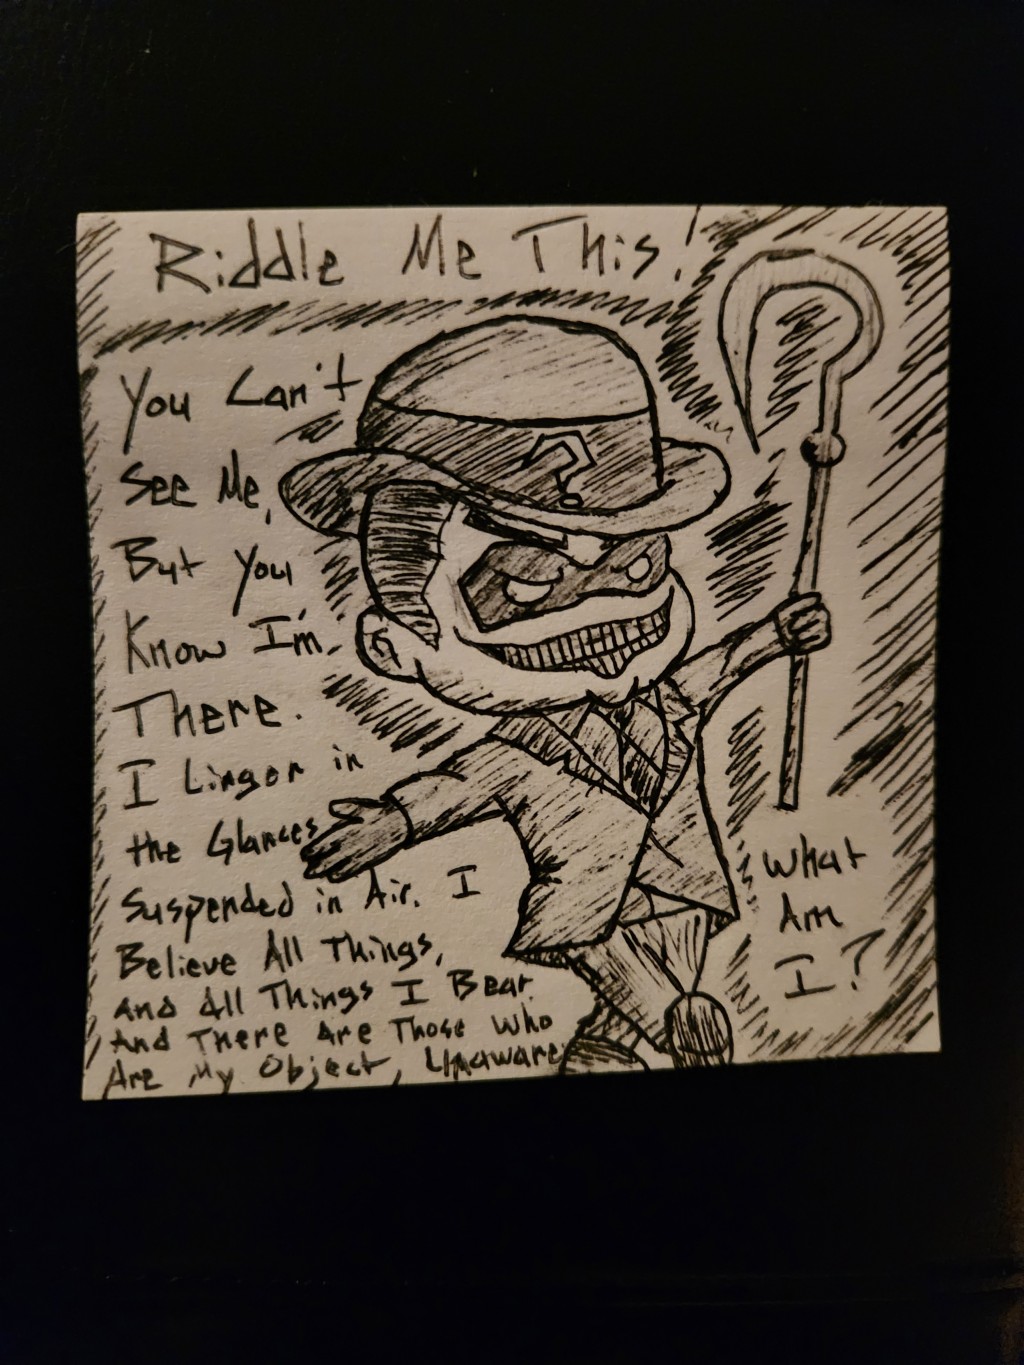 Riddle Me This!
You Can't
See Me,
But You
Know I'm
There.
I Linger in
the Glances
Suspended in Air. I
Believe All Things,
And All Things I Bear.
And There Are Those Who
Are My Object, Unaware
What
Am
I?